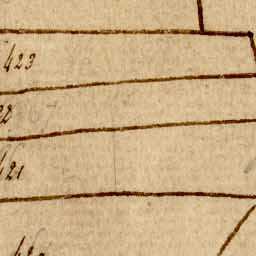 423
22
421